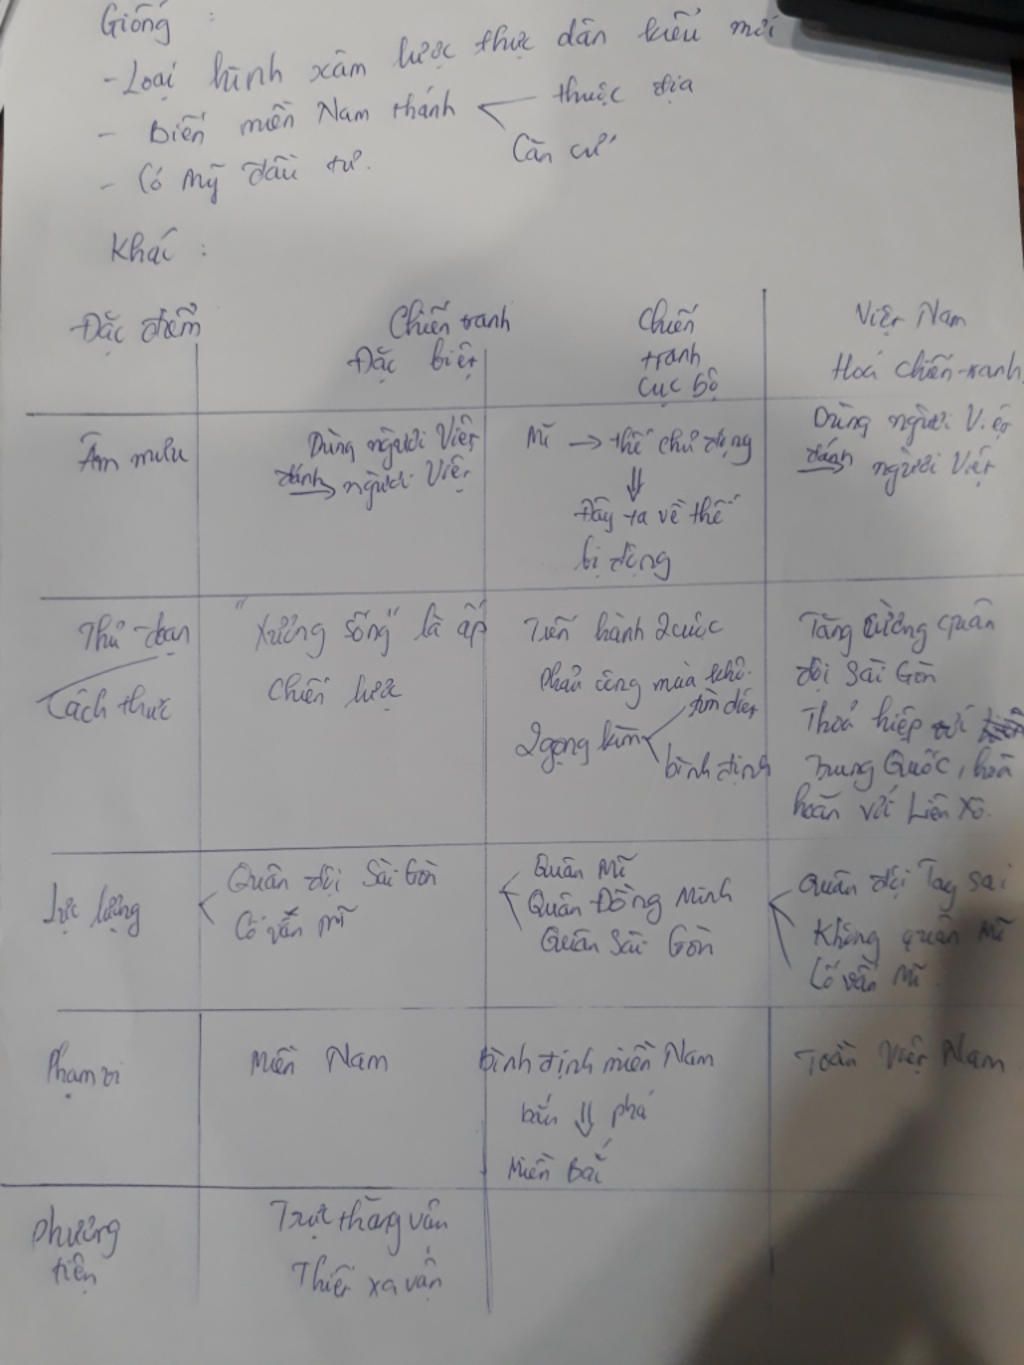 Giống :
- Loại hình xâm lược thực dân kiểu mới
- Biến miền Nam thành thuộc địa
Căn cứ
- Có Mỹ đầu tư.
Khác :
Đặc điểm
Chiến tranh
Đặc biệt
Chiến
tranh
Cục bộ
Việt Nam
Hoá chiến tranh
Âm mưu
Dùng người Việt
đánh → người Việt
Mĩ → thế chủ động
⇓
Đẩy ta về thế
bị động
Dùng người Việt
đánh → người Việt
Thủ đoạn
Cách thức
"Xương sống" là ấp
Chiến lược
Tiến hành 2 cuộc
Phản công mùa khô
2 gọng kìm
tìm diệt
bình định
Tăng cường quân
đội Sài Gòn
Thoả hiệp với
Trung Quốc, hoà
hoãn với Liên Xô.
Lực lượng
Quân đội Sài Gòn
Cố vấn Mĩ
Quân Mĩ
Quân Đồng Minh
Quân Sài Gòn
Quân đội Tay sai
Không quân Mĩ
Cố vấn Mĩ.
Phạm vi
Miền Nam
Bình định miền Nam
bắn ⇓ phá
Miền Bắc
Toàn Việt Nam
Phương
tiện
Trực thăng vận
Thiết xa vận